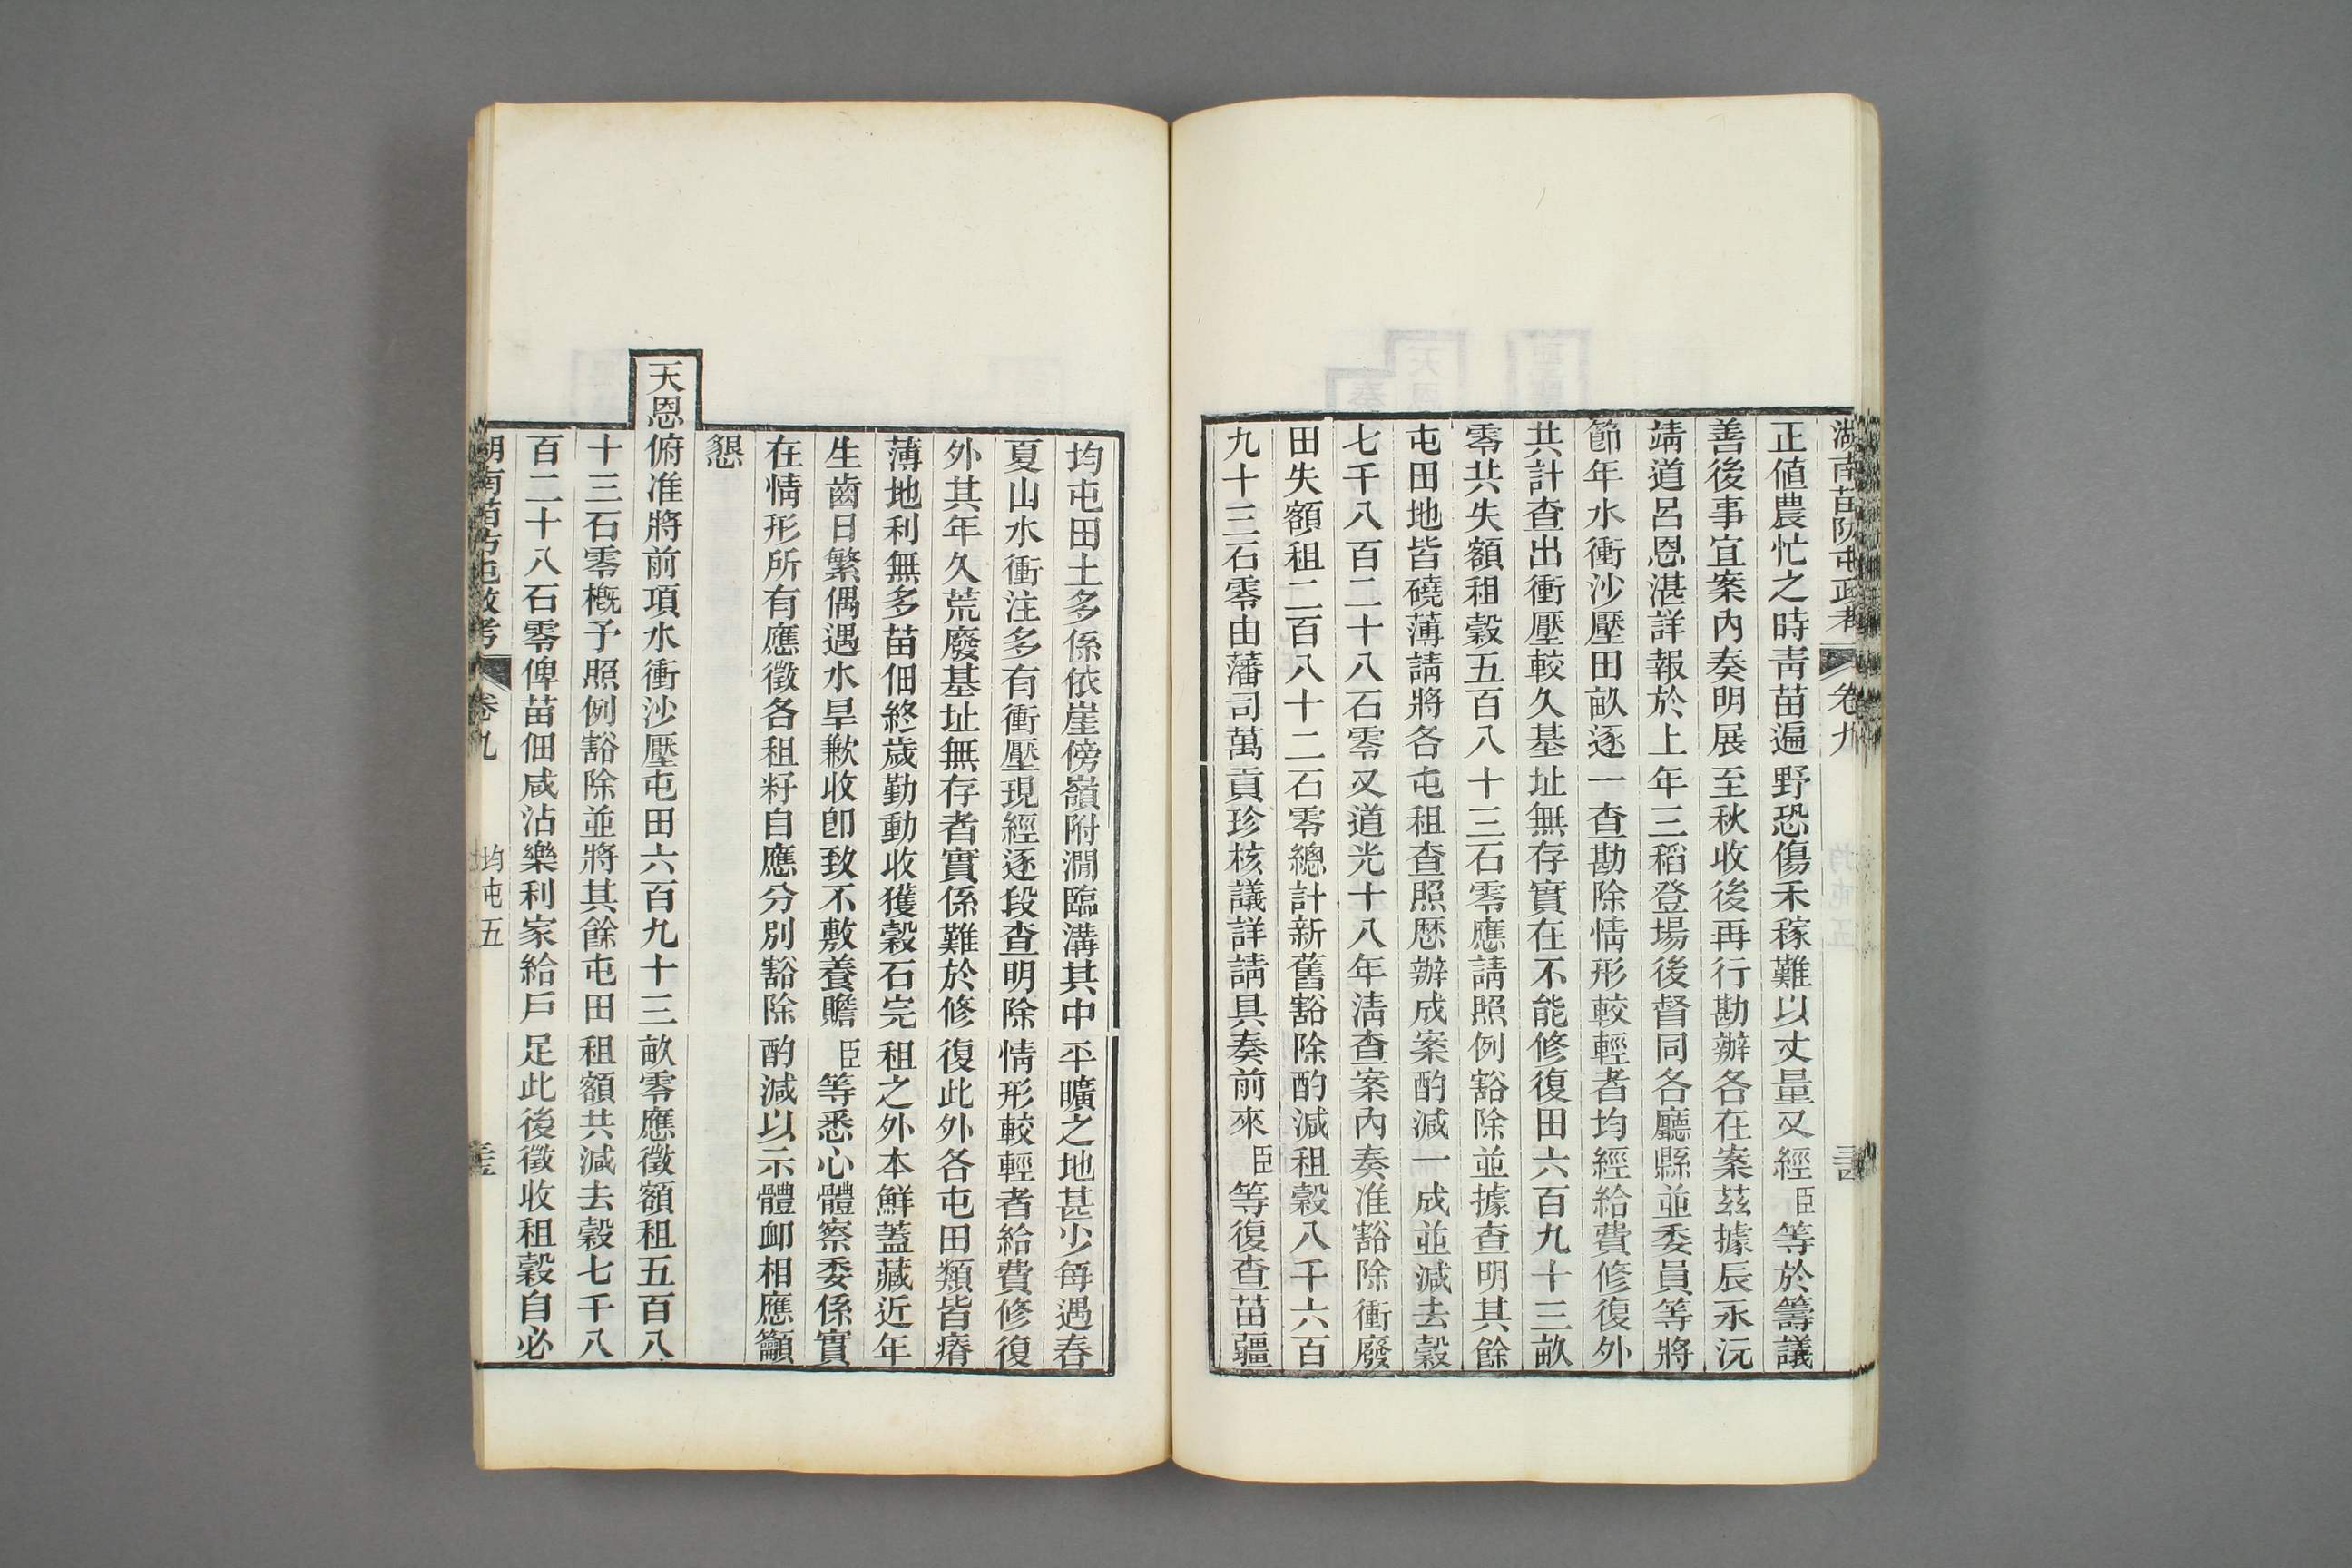 湖南苗防屯政考 卷九
正値農忙之時靑苗遍野恐傷禾稼難以丈量又經臣等於籌議
善後事宜案內奏明展至秋收後再行勘辦各在案茲據辰永沅
靖道呂恩湛詳報於上年三稻登場後督同各廳縣並委員等將
節年水衝沙壓田畝逐一查勘除情形較輕者均經給費修復外
共計查出衝壓較久基址無存實在不能修復田六百九十三畝
零共失額租穀五百八十三石零應請照例豁除並據查明其餘
屯田地皆磽薄請將各屯租查照歷辦成案酌減一成並減去穀
七千八百二十八石零又道光十八年淸查案內奏准豁除衝廢
田失額租二百八十二石零總計新舊豁除酌減租穀八千六百
九十三石零由藩司萬貢珍核議詳請具奏前來臣等復查苗疆
均屯田土多係依崖傍嶺附澗臨溝其中平曠之地甚少每遇春
夏山水衝注多有衝壓現經逐段查明除情形較輕者給費修復
外其年久荒廢基址無存者實係難於修復此外各屯田類皆瘠
薄地利無多苗佃終歲勤動收獲穀石完租之外本鮮蓋藏近年
生齒日繁偶遇水旱歉收卽致不敷養贍臣等悉心體察委係實
在情形所有應徵各租籽自應分別豁除酌減以示體卹相應籲
懇
天恩俯准將前項水衝沙壓屯田六百九十三畝零應徵額租五百八
十三石零槪予照例豁除並將其餘屯田租額共減去穀七千八
百二十八石零俾苗佃咸沾樂利家給戶足此後徵收租穀自必
湖南苗防屯政考 卷九 均屯五